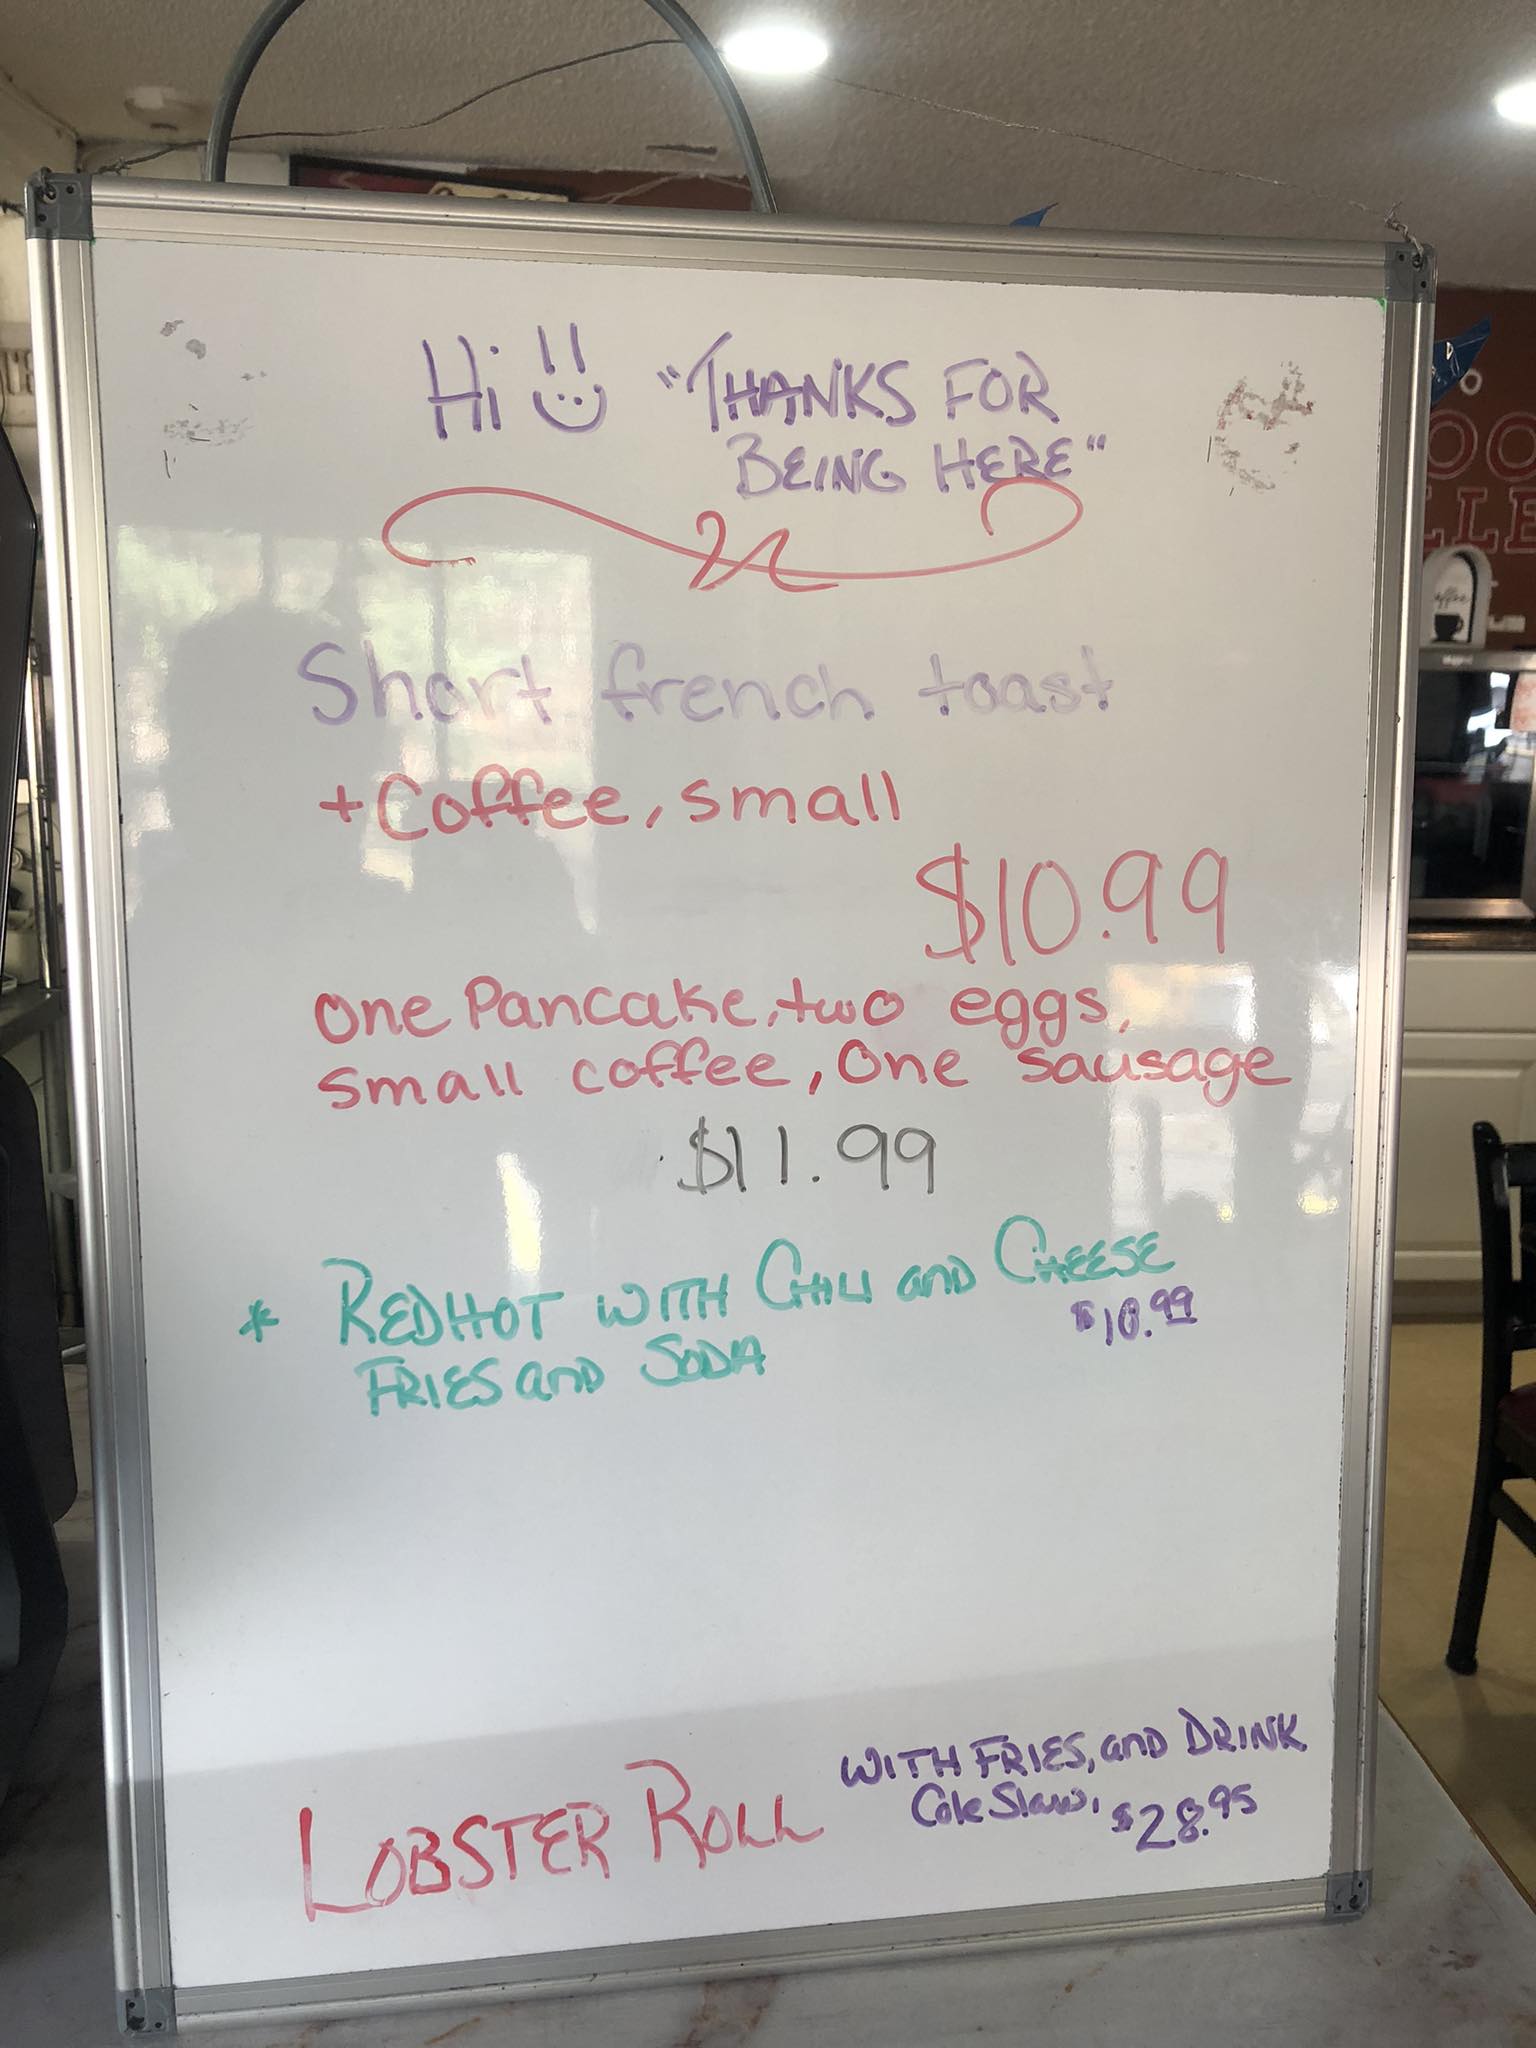 Hi "THANKS FOR
BEING HERE"
Short french toast
+Coffee, small
$10.99
One Pancake, two eggs,
small coffee, One sausage
$11.99
* REDHOT WITH CHILI and CHEESE
$10.99
FRIES and SODA
WITH FRIES, and DRINK
Cole Slaw. $28.95
LOBSTER ROLL